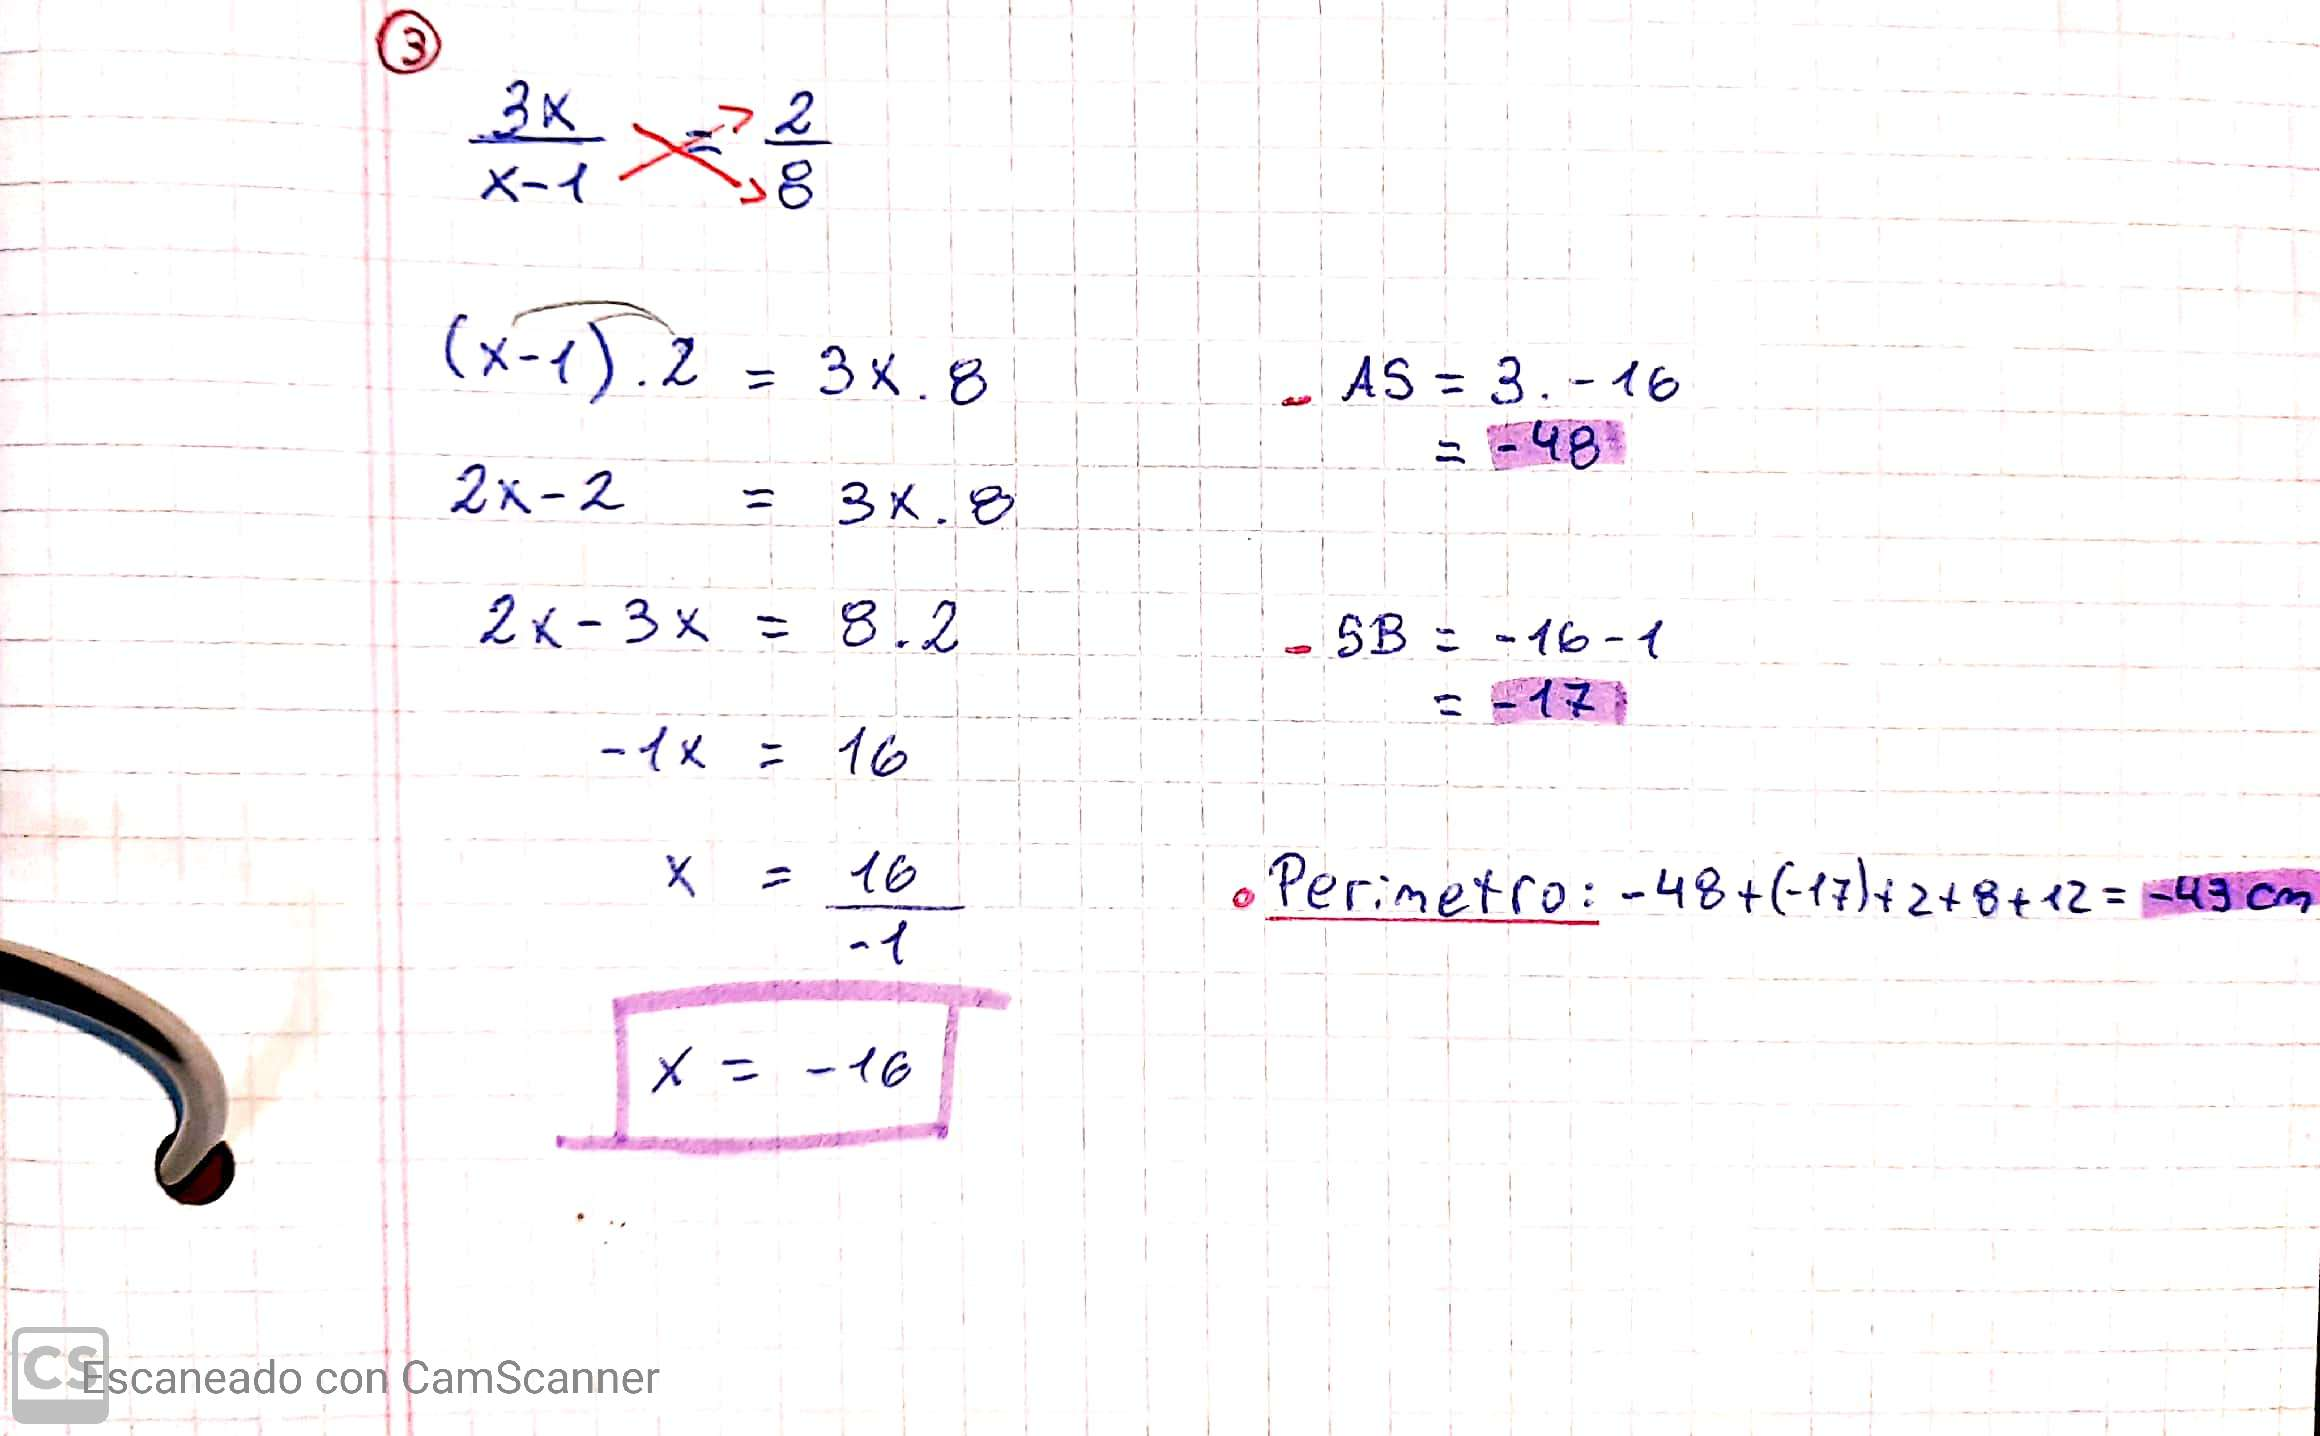 3
3x / x-1 = 2 / 8
(x-1).2 = 3x.8
2x-2 = 3x.8
2x-3x = 8.2
-1x = 16
x = 16 / -1
x = -16
- AS = 3.-16
= -48
- SB = -16-1
= -17
• Perimetro: -48+(-17)+2+8+12= -43 cm
CS Escaneado con CamScanner